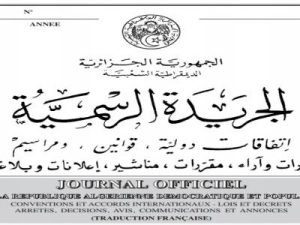 N°
ANNEE
الجمهورية الجزائرية
الديمقراطية الشعبية
الجريدة الرسمية
إتفاقات دولية، قوانين، ومراسيم
وآراء، مقررات، مناشير، إعلانات
JOURNAL OFFICIEL
REPUBLIQUE ALGERIENNE DEMOCRATIQUE ET
CONVENTIONS ET ACCORDS INTERNATIONAUX - LOIS ET DECRETS
ARRETES, DECISIONS, AVIS, COMMUNICATIONS ET ANNONCES
(TRADUCTION FRANÇAISE)